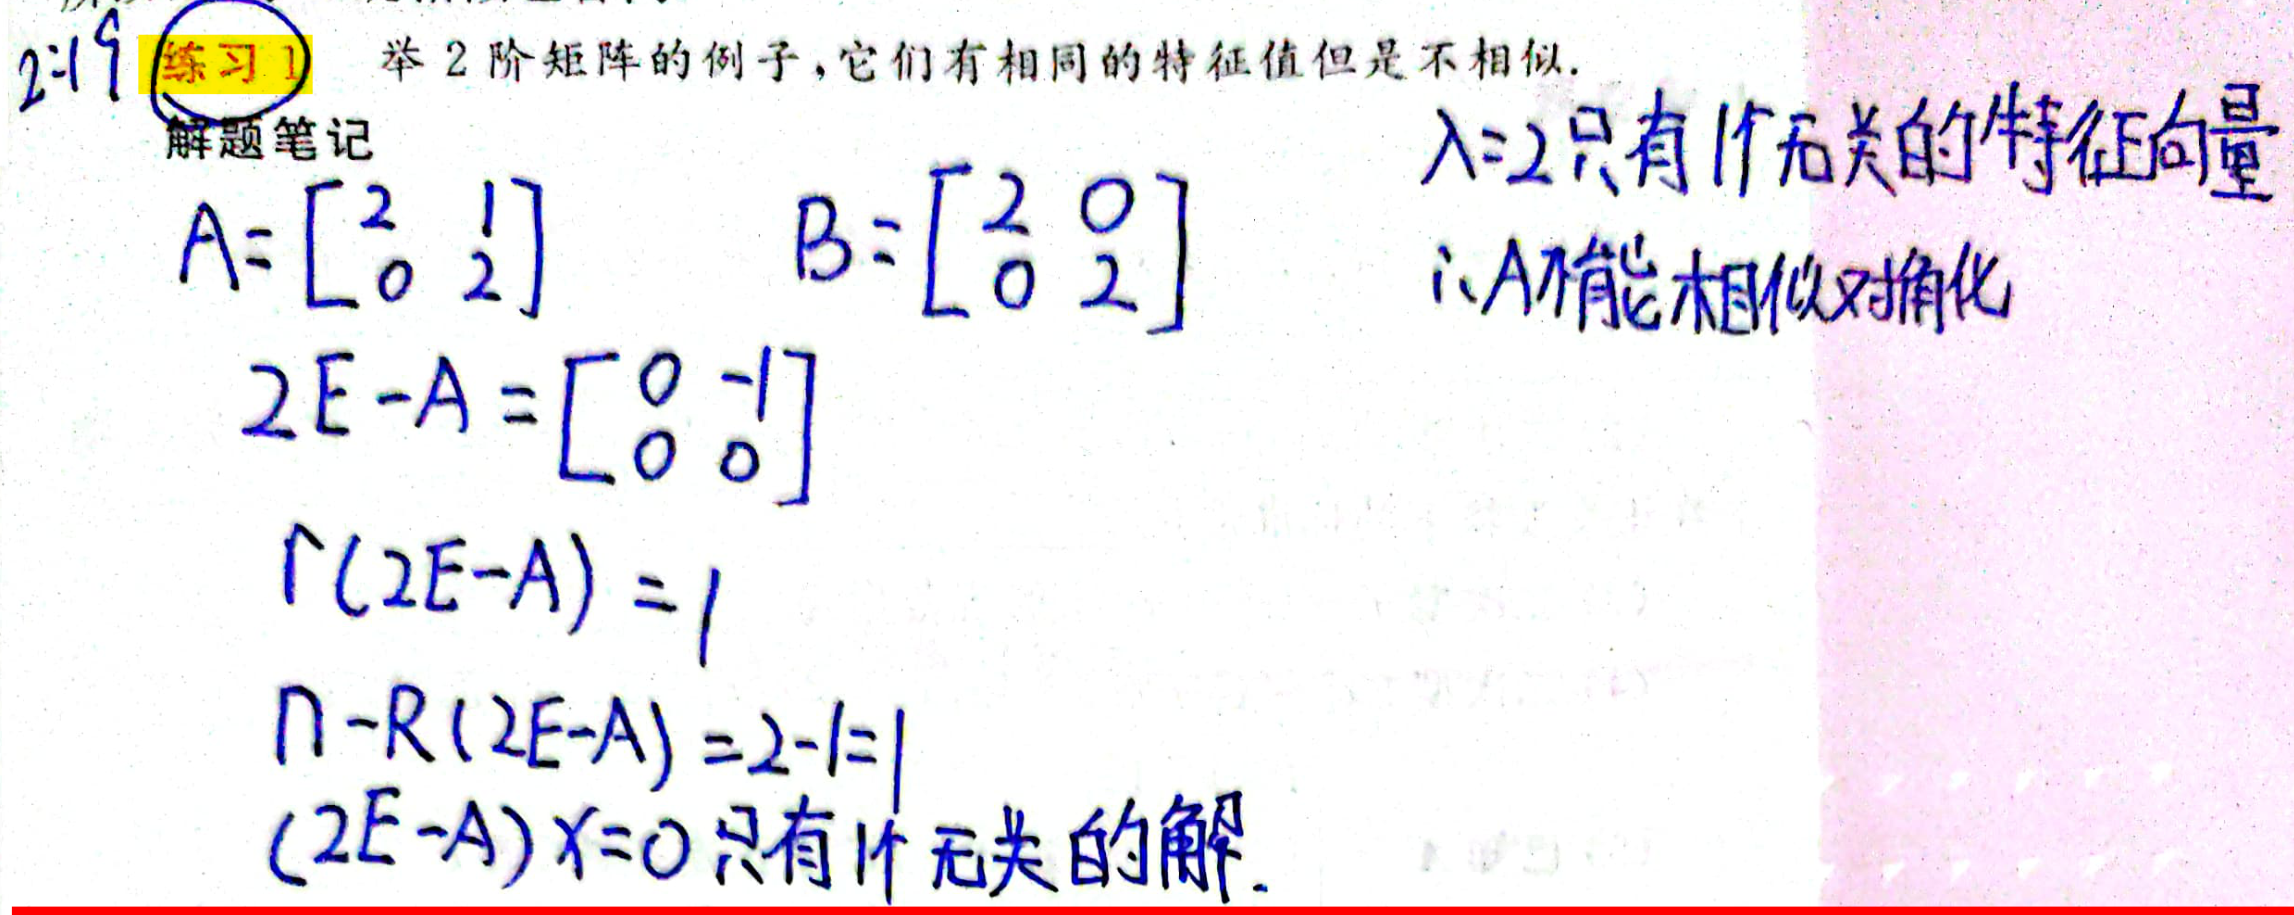 2:19 练习1 举2阶矩阵的例子,它们有相同的特征值但是不相似.
解题笔记
A=[2 1
0 2]
B=[2 0
0 2]
2E-A=[0 -1
0 0]
r(2E-A)=1
n-R(2E-A)=2-1=1
(2E-A)x=0只有1个无关的解.
λ=2只有1个无关的特征向量
∴A不能相似对角化